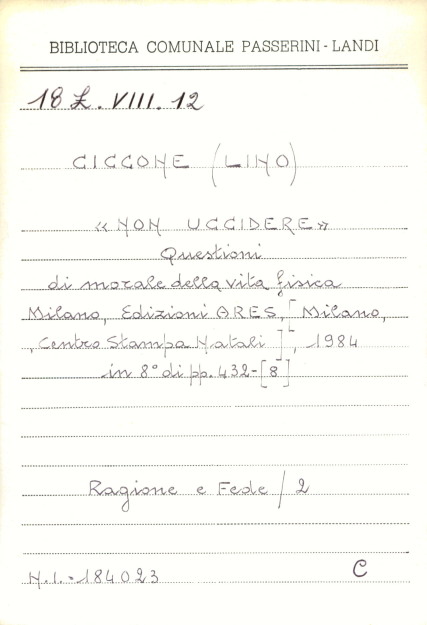 BIBLIOTECA COMUNALE PASSERINI - LANDI
18 Ł. VIII. 12
CICCONE (LINO)
«NON UCCIDERE»
Questioni
di morale della vita fisica
Milano, Edizioni ARES, [Milano,
, Centro Stampa Natali], 1984
in 8° di pp. 432-[8]
Ragione e Fede / 2
N.I.-184023
C